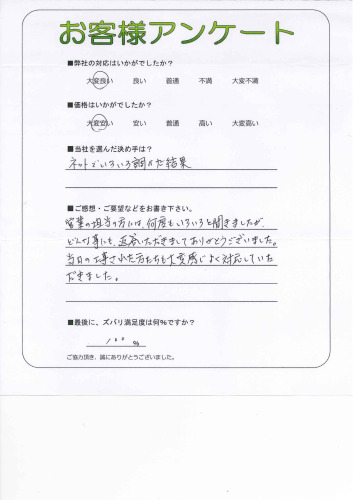 お客様アンケート
■弊社の対応はいかがでしたか？
大変良い 良い 普通 不満 大変不満
■価格はいかがでしたか？
大変安い 安い 普通 高い 大変高い
■当社を選んだ決め手は？
ネットでいろいろ調べた結果
■ご感想・ご要望などをお書き下さい。
営業の担当の方には、何度もいろいろと聞きましたが、
どんな事にも、返答いただきましてありがとうございました。
当日の工事された方たちも大変感じよく対応していた
だきました。
■最後に、ズバリ満足度は何%ですか？
100 %
ご協力頂き、誠にありがとうございました。